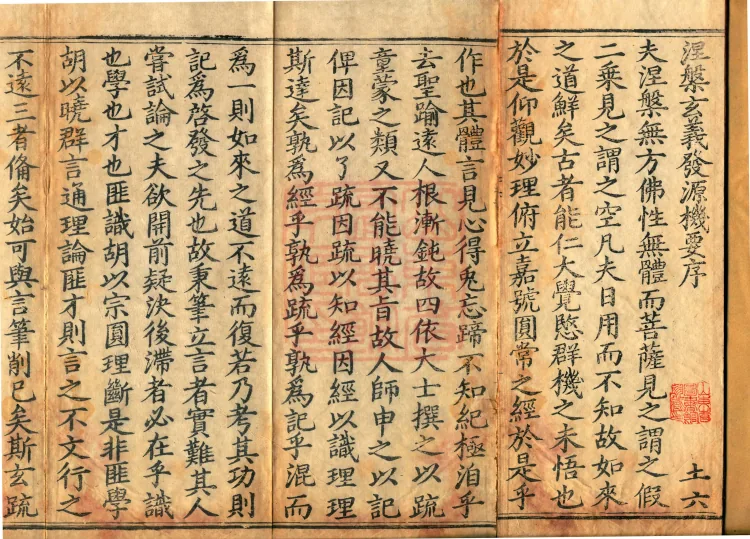 涅槃玄義發源機要序 土六
夫涅槃無方佛性無體而菩薩見之謂之假
二乗見之謂之空凡夫日用而不知故如來
之道鮮矣古者能仁大覺愍群機之未悟也
於是仰觀妙理俯立嘉號圓常之經於是乎
作也其體言見心得兔忘蹄不知紀極洎乎
去聖踰遠人根漸鈍故四依大士撰之以疏
童蒙之類又不能曉其旨故人師申之以記
俾因記以了疏因疏以知經因經以識理理
斯達矣孰爲經乎孰爲疏乎孰爲記乎混而
爲一則如來之道不遠而復若乃考其功則
記爲啓發之先也故秉筆立言者實難其人
甞試論之夫欲開前疑決後滯者必在乎識
也學也才也匪識胡以宗圓理斷是非匪學
胡以曉群言通理論匪才則言之不文行之
不遠三者俻矣始可與言筆削已矣斯玄疏